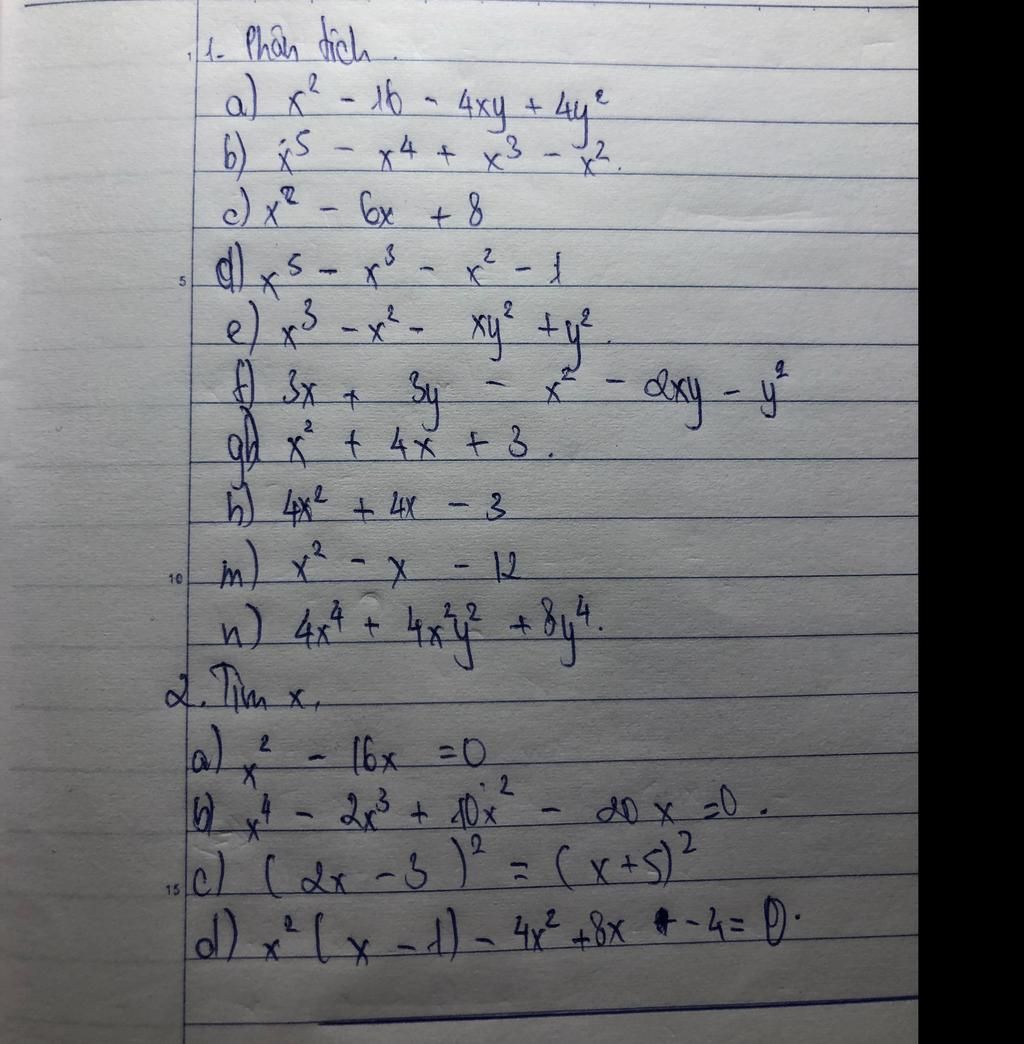 1. Phân tích.
a) x² - 16 - 4xy + 4y²
b) x⁵ - x⁴ + x³ - x².
c) x² - 6x + 8
5 d) x⁵ - x³ - x² - 1
e) x³ - x² - xy² + y².
f) 3x + 3y - x² - 2xy - y²
g) x² + 4x + 3.
h) 4x² + 4x - 3
10 m) x² - x - 12
n) 4x⁴ + 4x²y² + 8y⁴.
2. Tìm x,
a) x² - 16x = 0
b) x⁴ - 2x³ + 10x² - 20x = 0.
15 c) (2x - 3)² = (x + 5)²
d) x² (x - 1) - 4x² + 8x - 4 = 0.